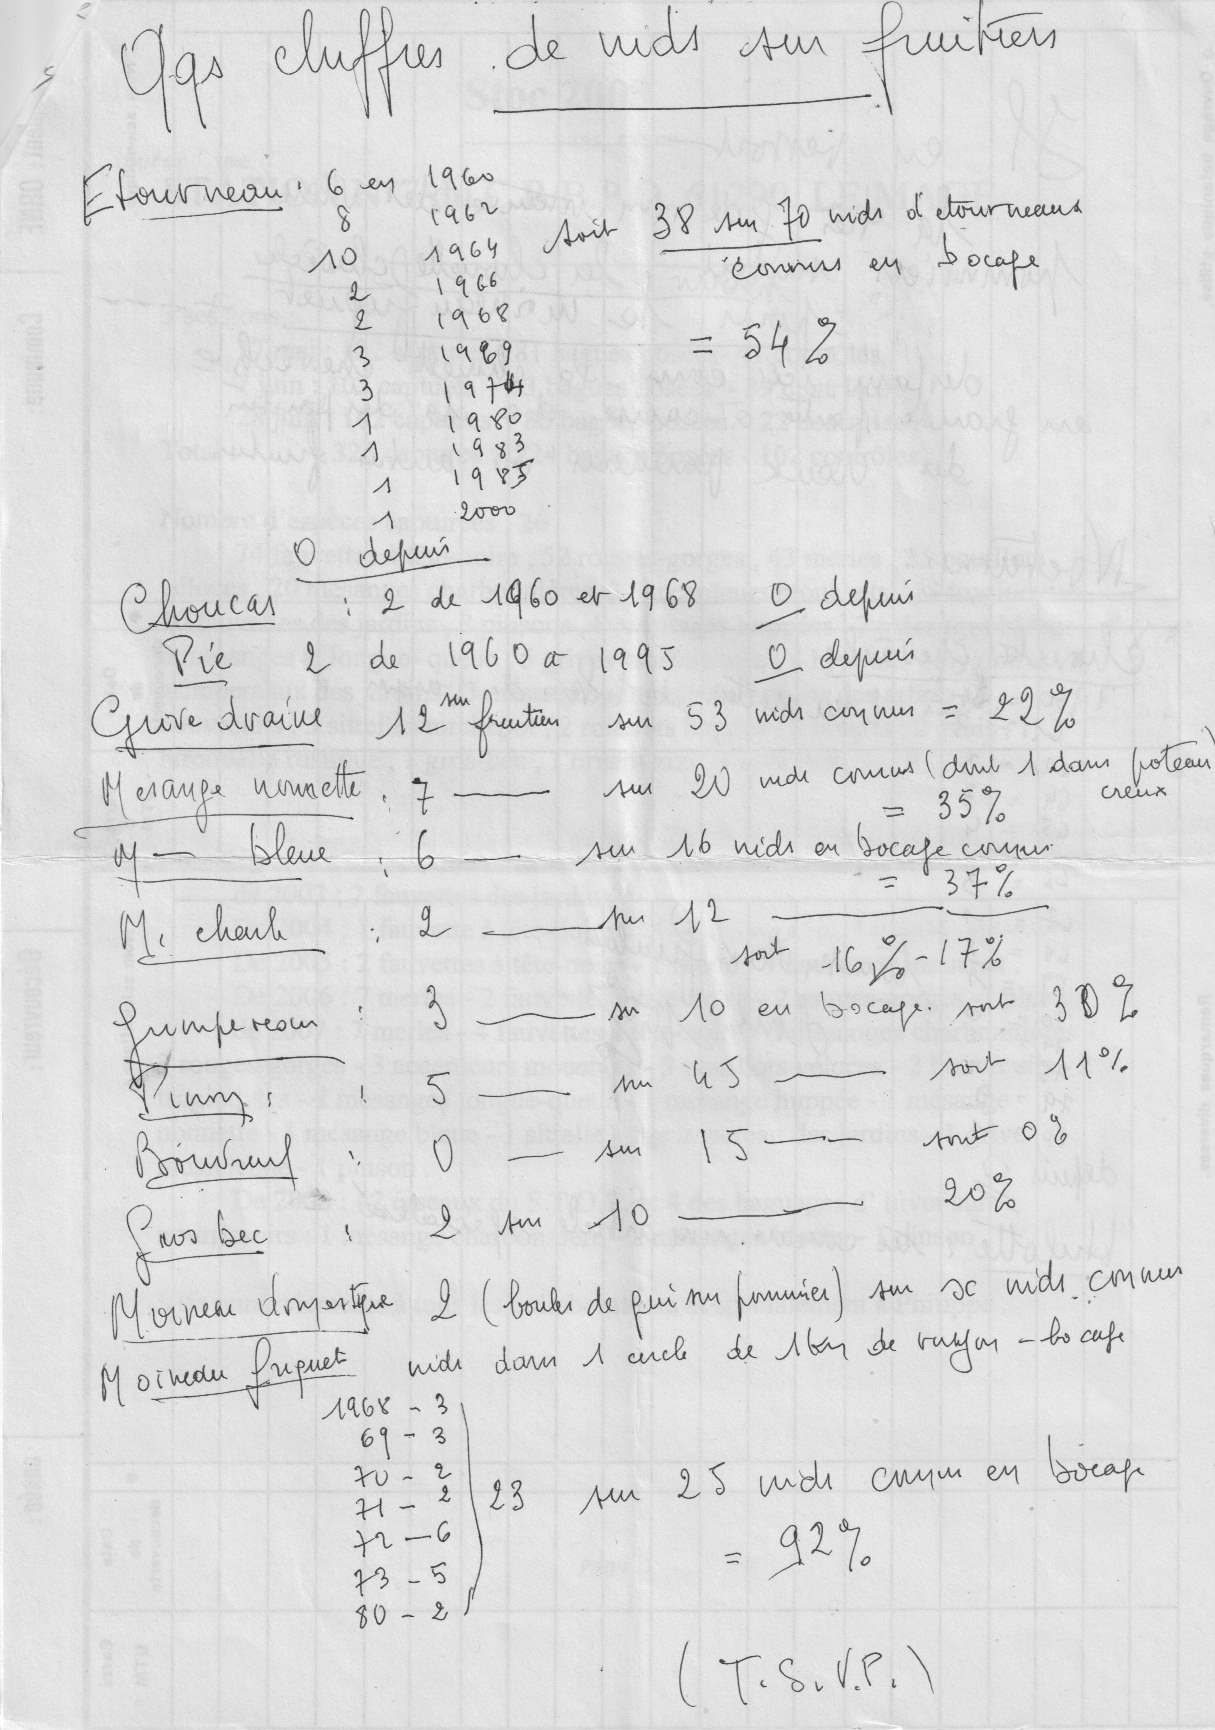 Qqs chiffres de nids sur fruitiers
Etourneau : 6 en 1960
8 1962
10 1964 soit 38 sur 70 nids d'etourneaux
2 1966 connus en bocage
2 1968
3 1969 = 54 %
3 1974
1 1980
1 1983
1 1985
1 2000
0 depuis
Choucas : 2 de 1960 et 1968 0 depuis
Pie 2 de 1960 a 1995 0 depuis
Grive draine 12 sur fruitier sur 53 nids connus = 22%
Mesange nonnette : 7 —— sur 20 nids connus (dont 1 dans poteau creux
= 35%
M — bleue : 6 —— sur 16 nids en bocage connus
= 37%
M. charb : 2 —— sur 12 ——
soit 16% - 17%
Grimpereau : 3 —— sur 10 en bocage. soit 30%
Pinson : 5 —— sur 45 —— soit 11%
Bouvreuil : 0 — sur 15 —— soit 0%
Gros bec : 2 sur 10 —— 20%
Moineau domestique 2 (boules de gui sur pommier) sur x nids connus
Moineau friquet nids dans 1 cercle de 1km de rayon - bocage
1968 - 3
69 - 3
70 - 2
71 - 2 23 sur 25 nids connus en bocage
72 - 6
73 - 5 = 92%
80 - 2
(T.S.V.P.)